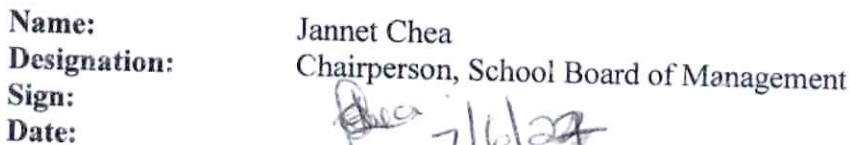 Name: Jannet Chea
Designation: Chairperson, School Board of Management
Sign: Chea
Date: 7/6/22